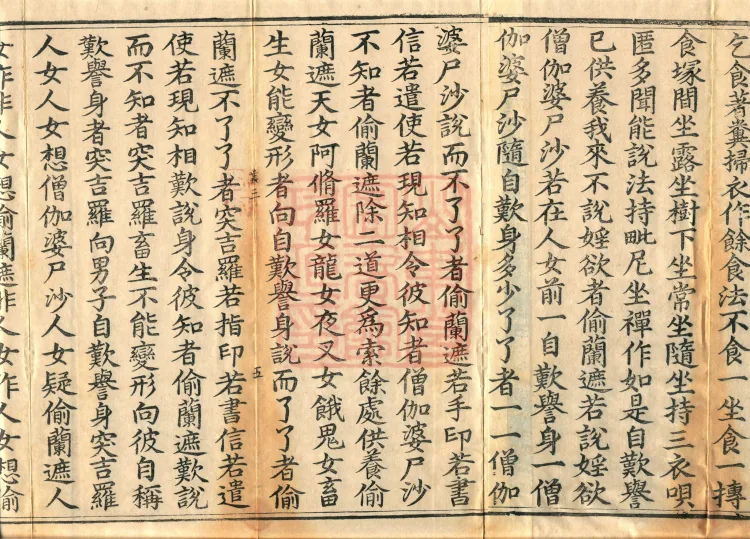 乞食著糞掃衣作餘食法不食一坐食一摶
食塚間坐露坐樹下坐常坐隨坐持三衣唄
匿多聞能說法持毗尼坐禪作如是自歎譽
已供養我來不說婬欲者偷蘭遮若說婬欲
僧伽婆尸沙若在人女前一自歎譽身一僧
伽婆尸沙隨自歎身多少了了者一一僧伽
婆尸沙說而不了了者偷蘭遮若手印若書
信若遣使若現知相令彼知者僧伽婆尸沙
不知者偷蘭遮除二道更爲索餘處供養偷
蘭遮天女阿脩羅女龍女夜叉女餓鬼女畜
生女能變形者向自歎譽身說而了了者偷
蘭遮不了了者突吉羅若指印若書信若遣
使若現知相歎說身令彼知者偷蘭遮歎說
而不知者突吉羅畜生不能變形向彼自稱
歎譽身者突吉羅向男子自歎譽身突吉羅
人女人女想僧伽婆尸沙人女疑偷蘭遮人
女作非人女想偷蘭遮非人女作人女想偷
五